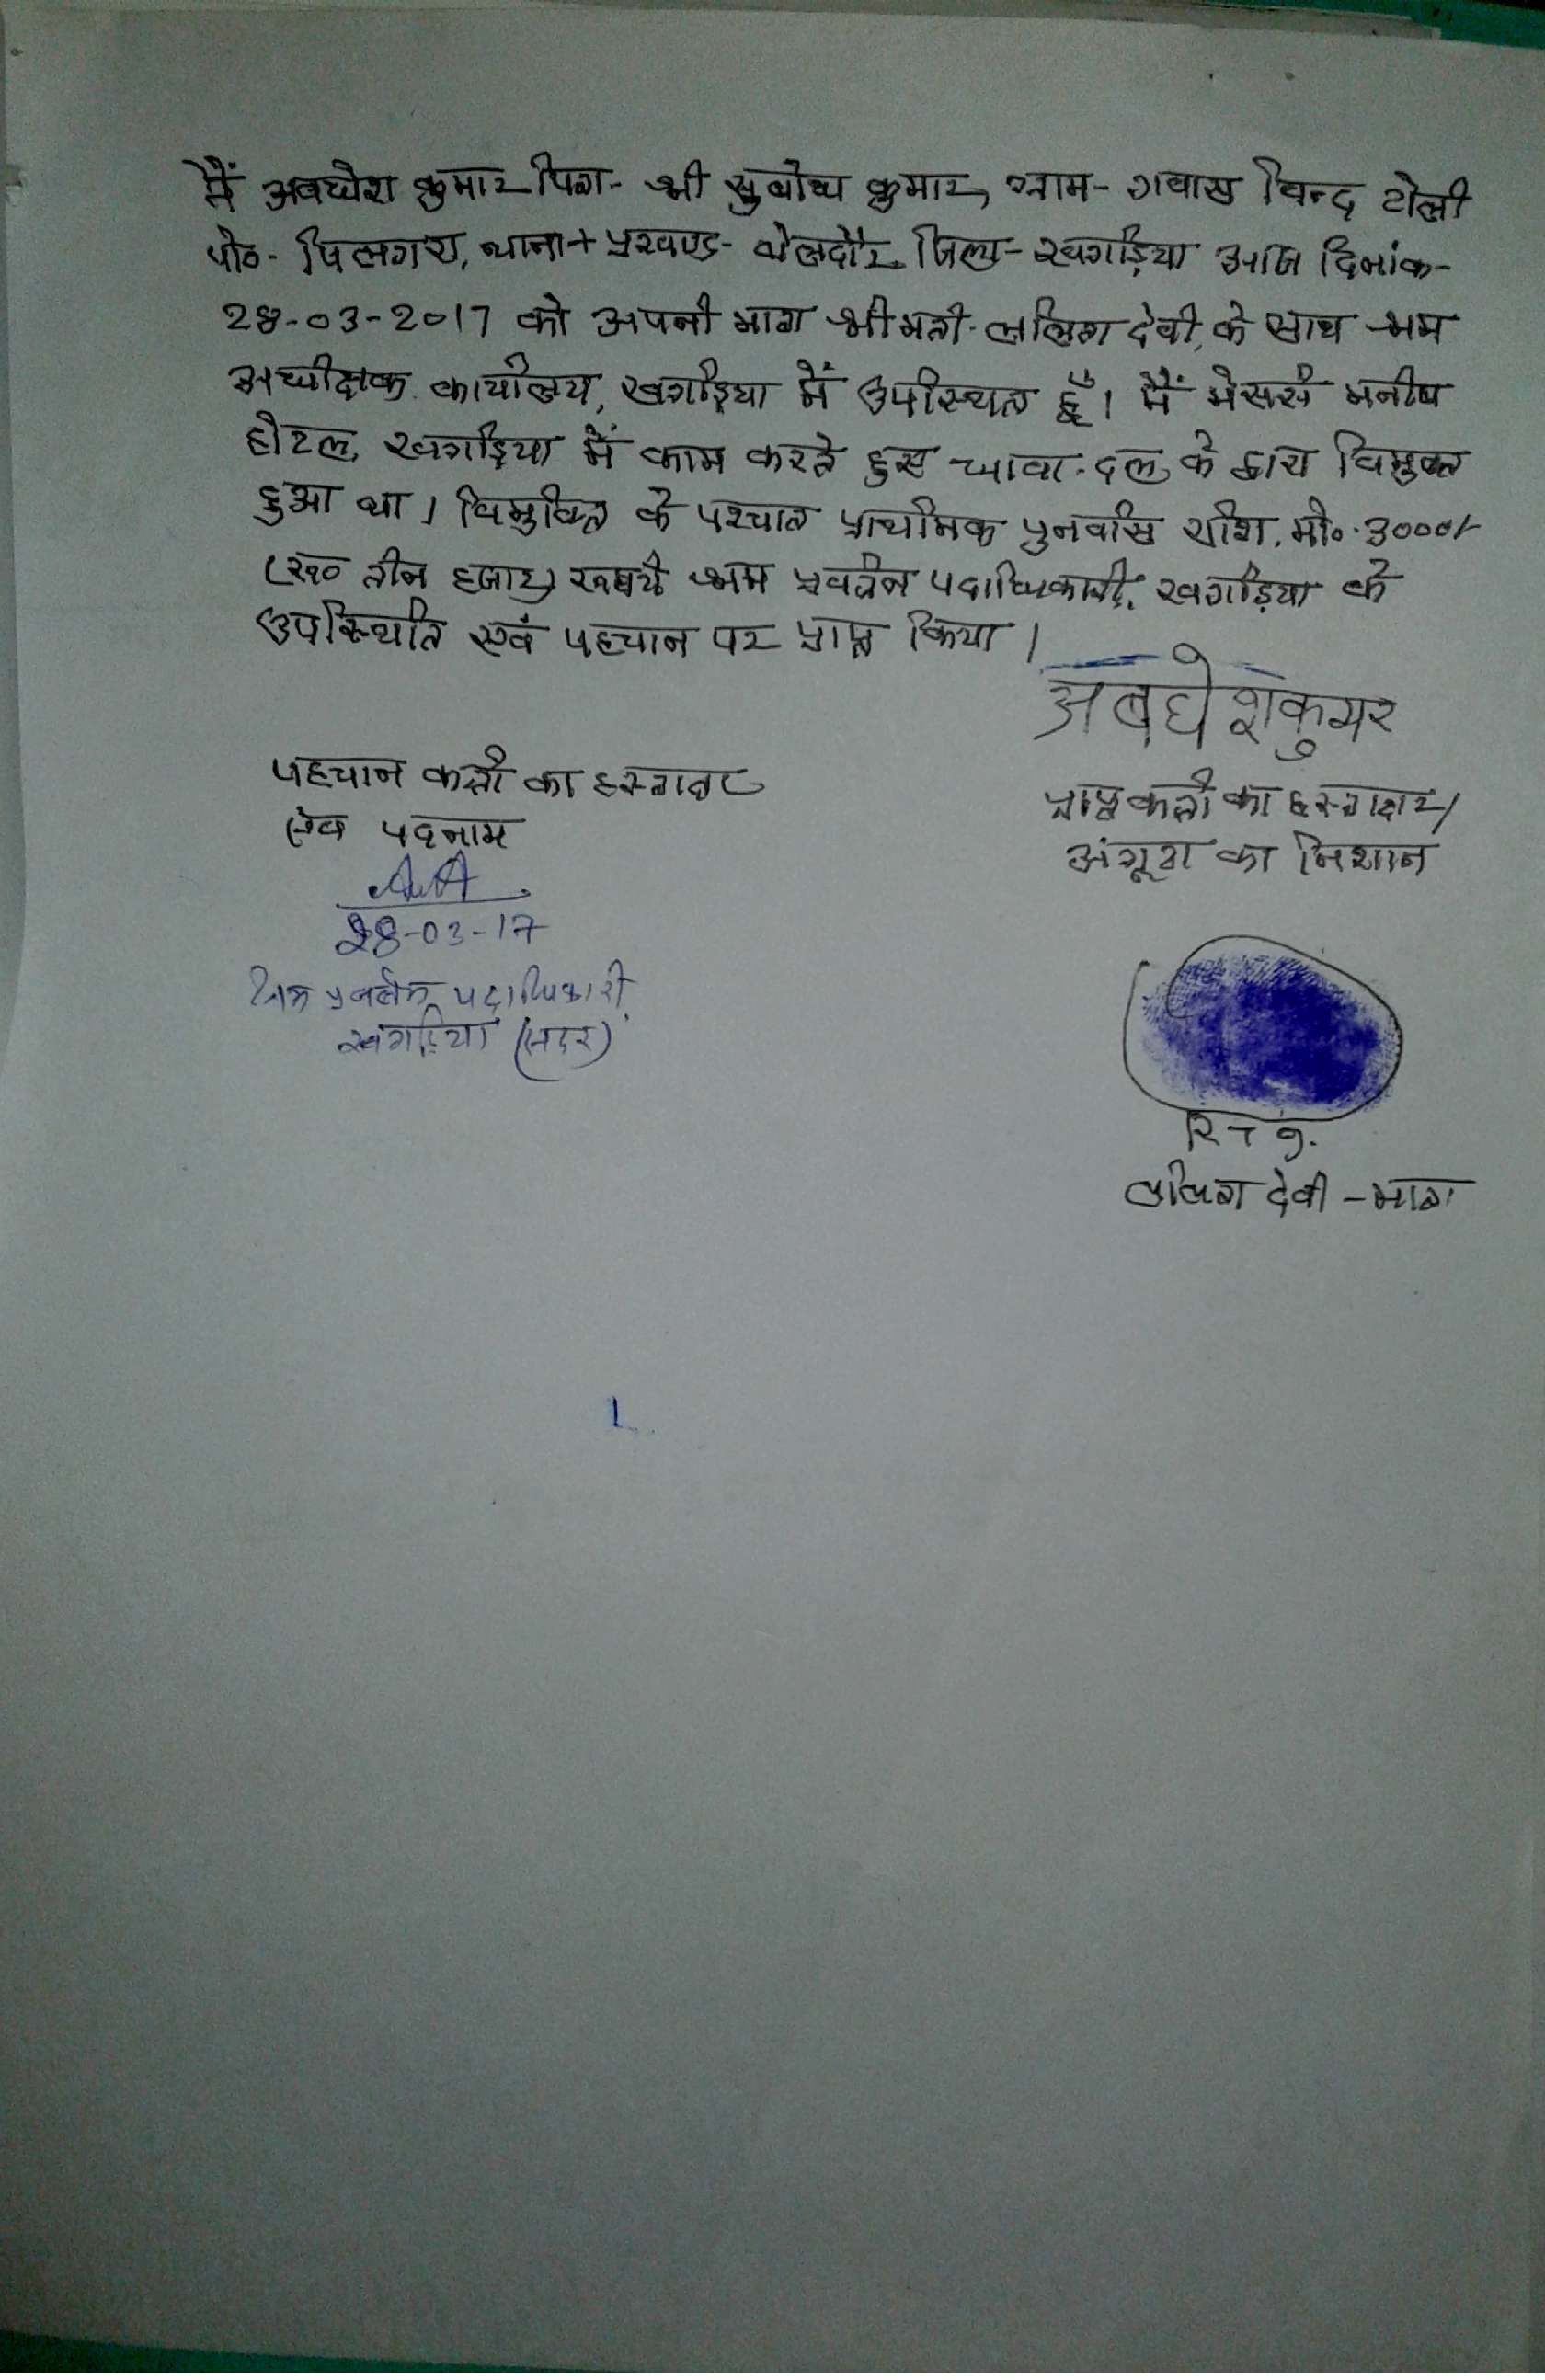 मैं अवधेश कुमार पिता- श्री सुबोध कुमार, ग्राम- गवास बिन्द टोली
पो०- पिलनगरा, थाना+ प्रखण्ड- बेलदौर जिला- खगड़िया आज दिनांक-
28-03-2017 को अपनी माता श्रीमती ललिता देवी, के साथ श्रम
अधीक्षक कार्यालय, खगड़िया में उपस्थित हूँ। मैं मेसर्स मनीष
होटल, खगड़िया में काम करते हुए धावा-दल के द्वारा विमुक्त
हुआ था। विमुक्ति के पश्चात प्राथमिक पुनर्वास राशि. मो०-3000/-
(रू० तीन हजार) रूपये श्रम प्रवर्तन पदाधिकारी, खगड़िया के
उपस्थिति एवं पहचान पर प्राप्त किया।
अबधेश कुमार
पहचान कर्त्ता का हस्ताक्षर
एवं पदनाम
28-03-17
श्रम प्रवर्तन पदाधिकारी,
खगड़िया (सदर)
प्राप्तकर्त्ता का हस्ताक्षर/
अंगूठा का निशान
ललिता देवी - माता